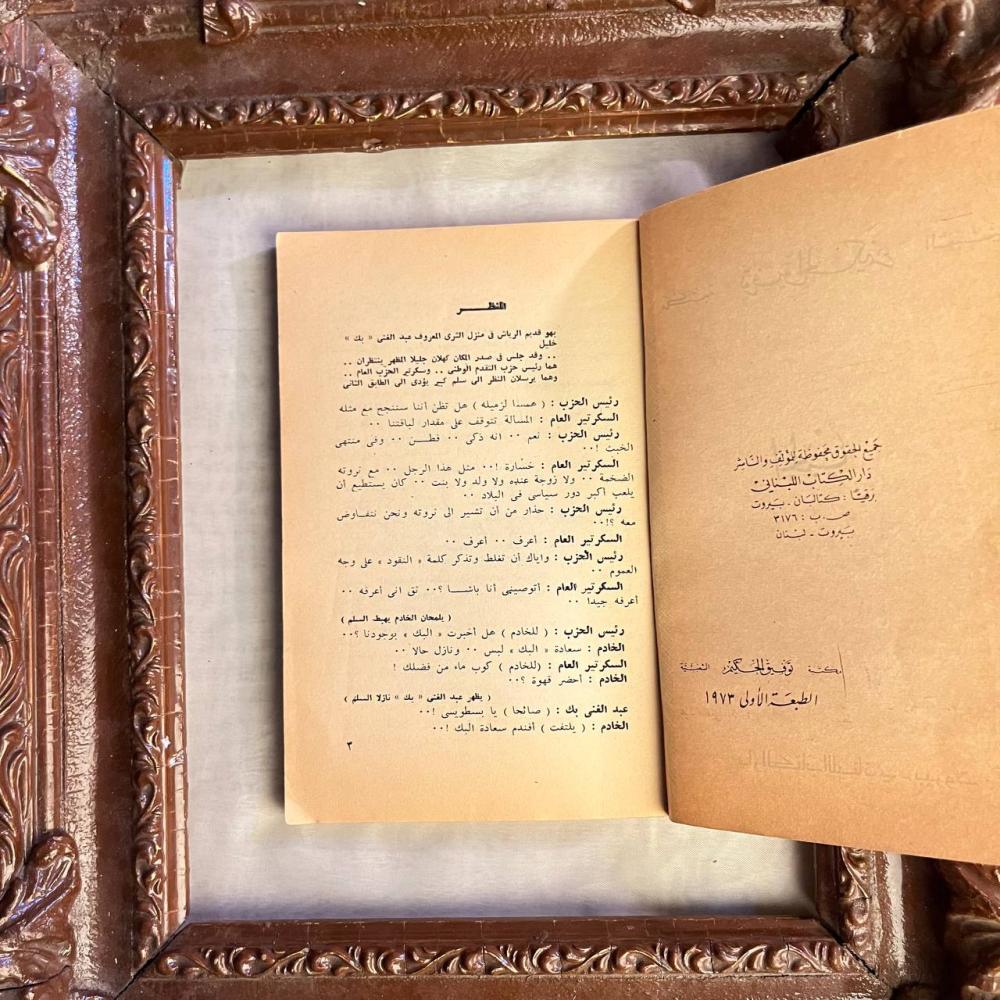 جميع الحقوق محفوظة للمؤلف والناشر
دار الكتاب اللبناني
برقيا : كتالبان . بيروت
ص . ب : ٣١٧٦
بيروت - لبنان
مكتبة توفيق الحكيم الشعبية
الطبعة الأولى ١٩٧٣
المنظر
بهو قديم الرياش فى منزل الثرى المعروف عبد الغنى « بك »
خليل
.. وقد جلس فى صدر المكان كهلان جليلا المظهر ينتظران ..
هما رئيس حزب التقدم الوطنى .. وسكرتير الحزب العام ..
وهما يرسلان النظر الى سلم كبير يؤدى الى الطابق الثانى
رئيس الحزب : ( همسا لزميله ) هل تظن أننا سننجح مع مثله
السكرتير العام : المسألة تتوقف على مقدار لباقتنا ..
رئيس الحزب : نعم .. انه ذكى .. فطن .. وفى منتهى
الخبث !..
السكرتير العام : خسارة !.. مثل هذا الرجل .. مع ثروته
الضخمة .. ولا زوجة عنده ولا ولد ولا بنت .. كان يستطيع أن
يلعب أكبر دور سياسى فى البلاد ..
رئيس الحزب : حذار من أن تشير الى ثروته ونحن نتفاوض
معه ؟!..
السكرتير العام : أعرف .. أعرف ..
رئيس الحزب : واياك أن تغلط وتذكر كلمة « النقود » على وجه
العموم ..
السكرتير العام : أتوصينى أنا باشا ؟.. ثق انى أعرفه
أعرفه جيدا ..
( يلمحان الخادم يهبط السلم )
رئيس الحزب : ( للخادم ) هل أخبرت « البك » بوجودنا ؟..
الخادم : سعادة « البك » لبس .. ونازل حالا ..
السكرتير العام : (للخادم ) كوب ماء من فضلك !
الخادم : أحضر قهوة ؟..
( يظهر عبد الغنى « بك » نازلا السلم )
عبد الغنى بك : ( صائحا ) يا بسطويسى !..
الخادم : ( يلتفت ) أفندم سعادة البك !..
٣